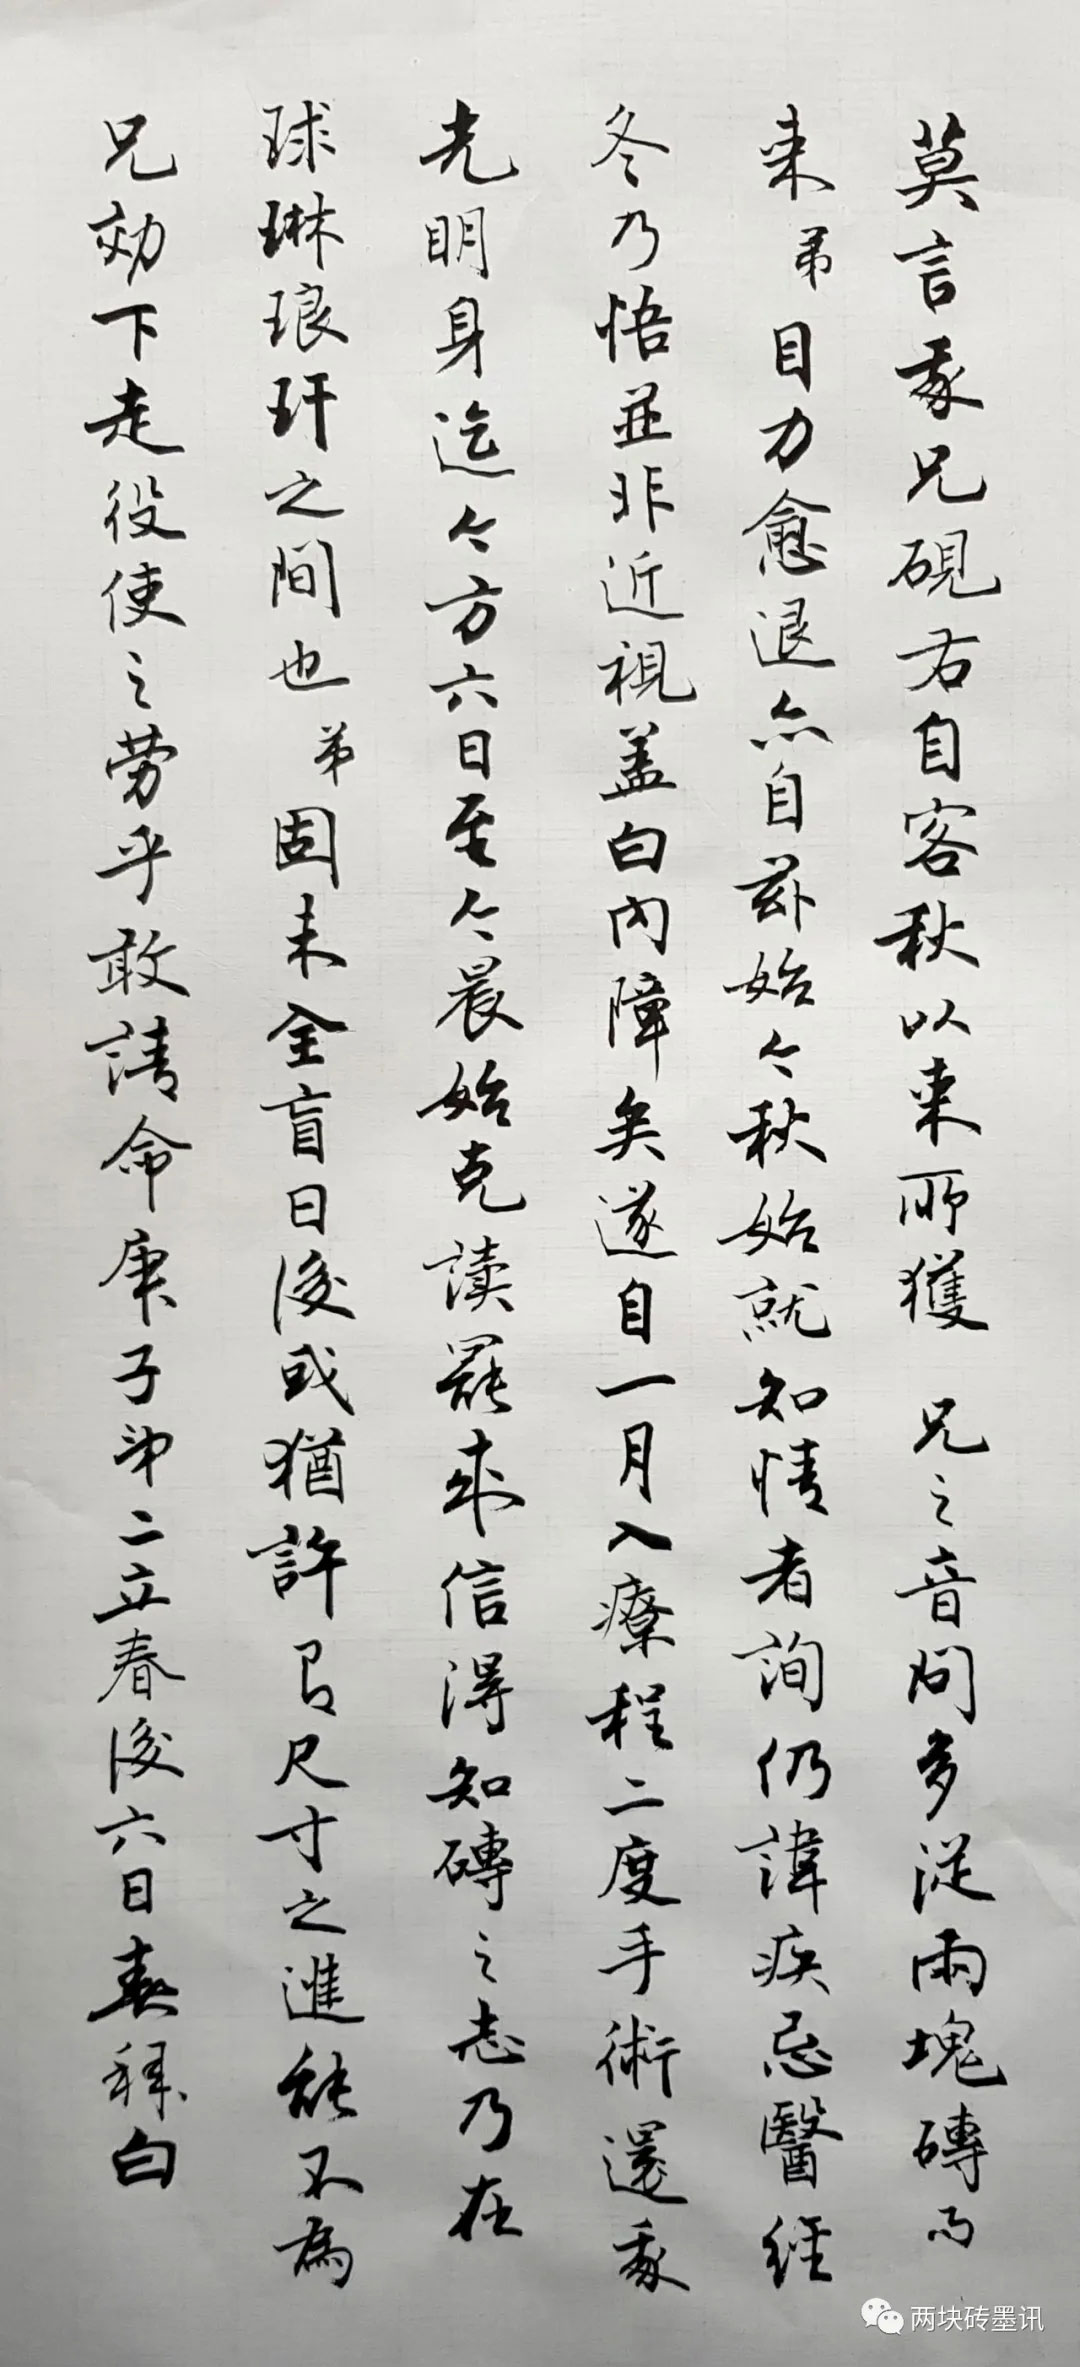 莫言我兄硯右自客秋以来所獲兄之音问多從兩塊磚而
来弟目力愈退亦自兹始今秋始就知情者詢仍諱疾忌醫經
冬乃悟並非近視盖白内障矣遂自一月入療程二度手術還我
光明身迄今方六日至今晨始克讀罷来信得知磚之志乃在
球琳琅玕之间也弟固未全盲日後或猶許有尺寸之進能不為
兄効下走役使之勞乎敢請命庚子第二立春後六日 拜白
两块砖墨讯